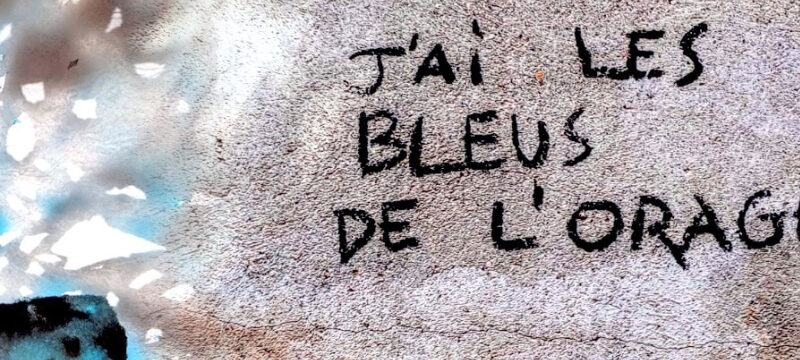 J'Ai LES
BLEUS
DE L'ORAG